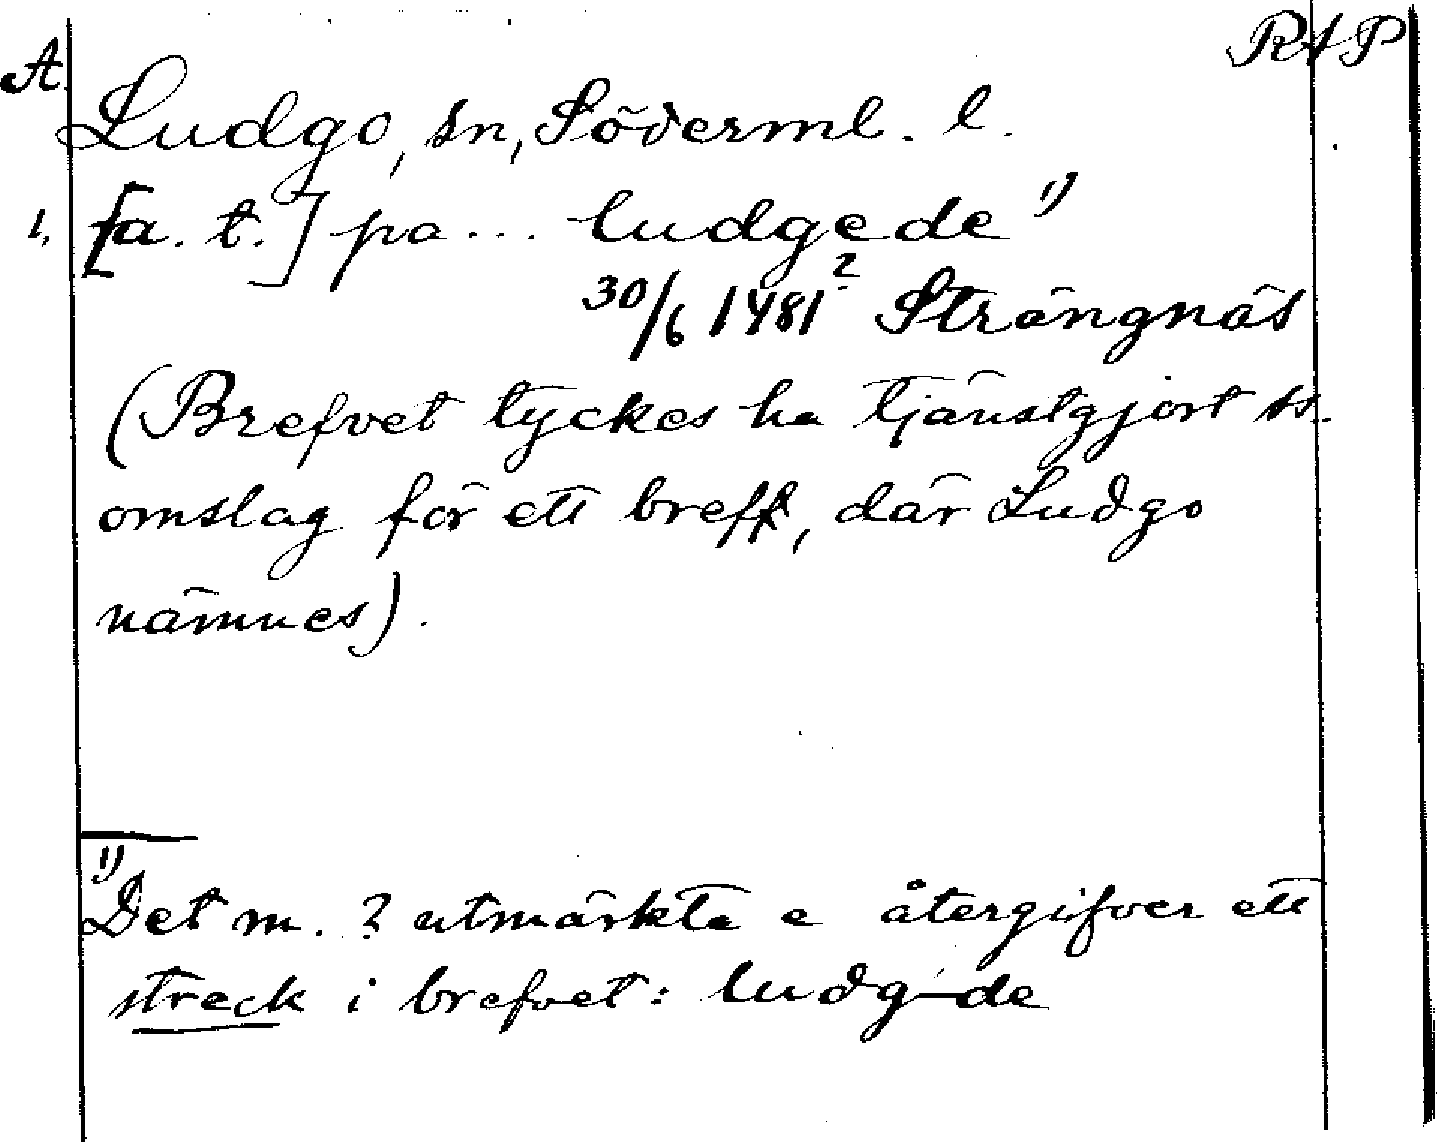 A. RAP
Ludgo, sn, Söderml. l.
1. [a. t.] pa ... ludgede 1)
?
30/6 1481 Strängnäs
(Brefvet tyckes ha tjänstgjort ss.
omslag för ett bref, där Ludgo
nämnes).
1) Det m. ? utmärkta e återgifver ett
streck i brefvet: ludg-de